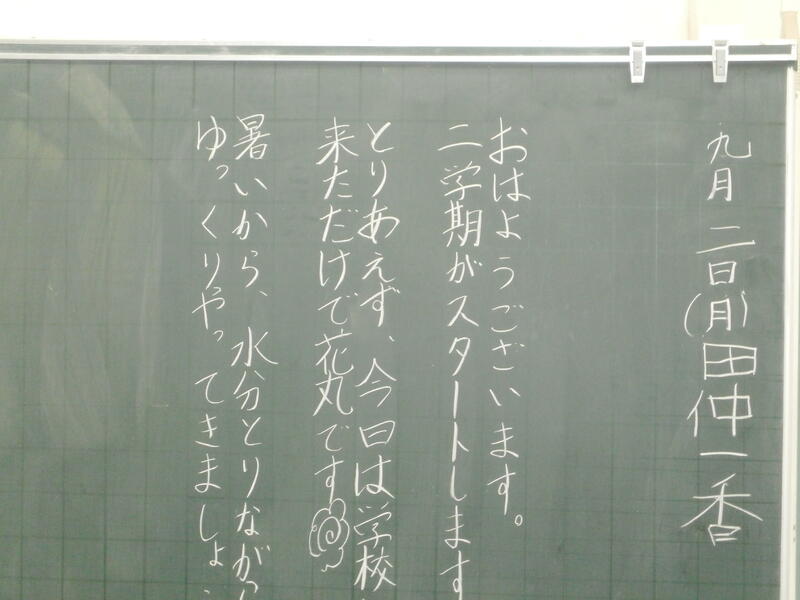 九月二日(月)田仲一香
おはようございます。
二学期がスタートします
とりあえず、今日は学校
来ただけで花丸です
暑いから、水分とりなが
ゆっくりやってきましょ